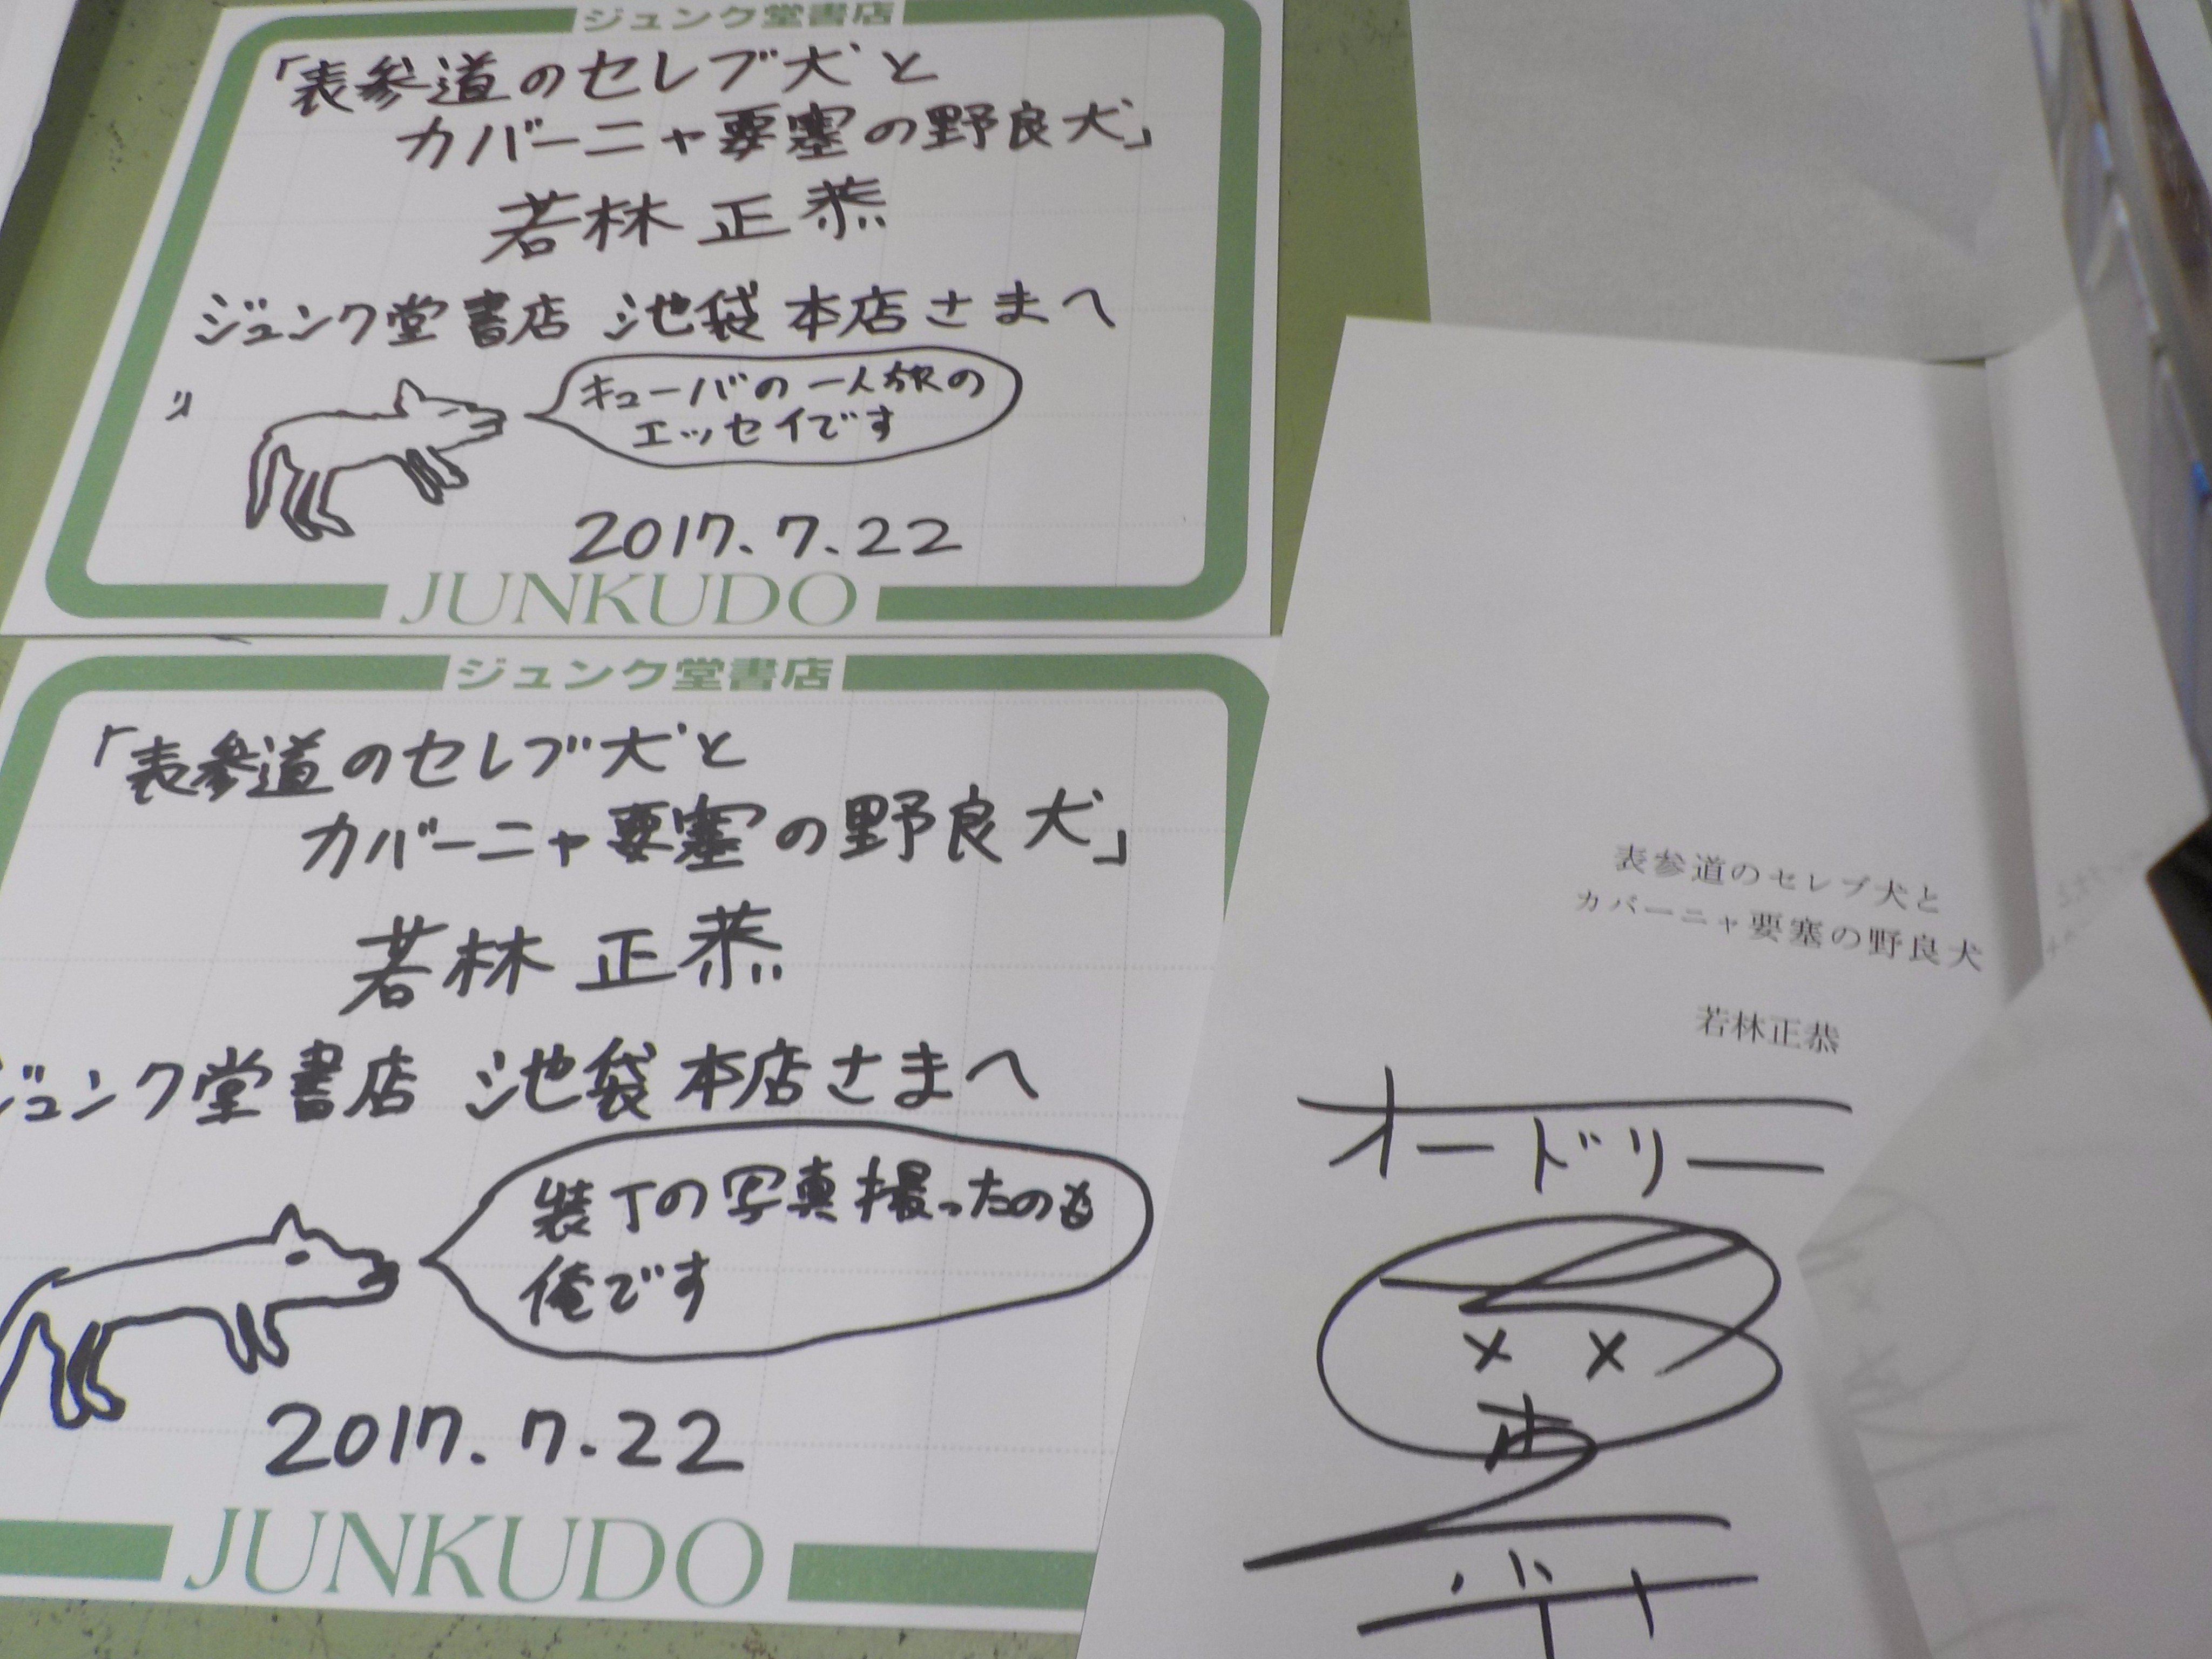 ジュンク堂書店
「表参道のセレブ犬と
カバーニャ要塞の野良犬」
若林 正恭
ジュンク堂書店 池袋本店さまへ
キューバの一人旅の
エッセイです
2017.7.22
JUNKUDO
ジュンク堂書店
「表参道のセレブ犬と
カバーニャ要塞の野良犬」
若林 正恭
ジュンク堂書店 池袋本店さまへ
装丁の写真撮ったのも
俺です
2017.7.22
JUNKUDO
表参道のセレブ犬と
カバーニャ要塞の野良犬
若林正恭
オードリー